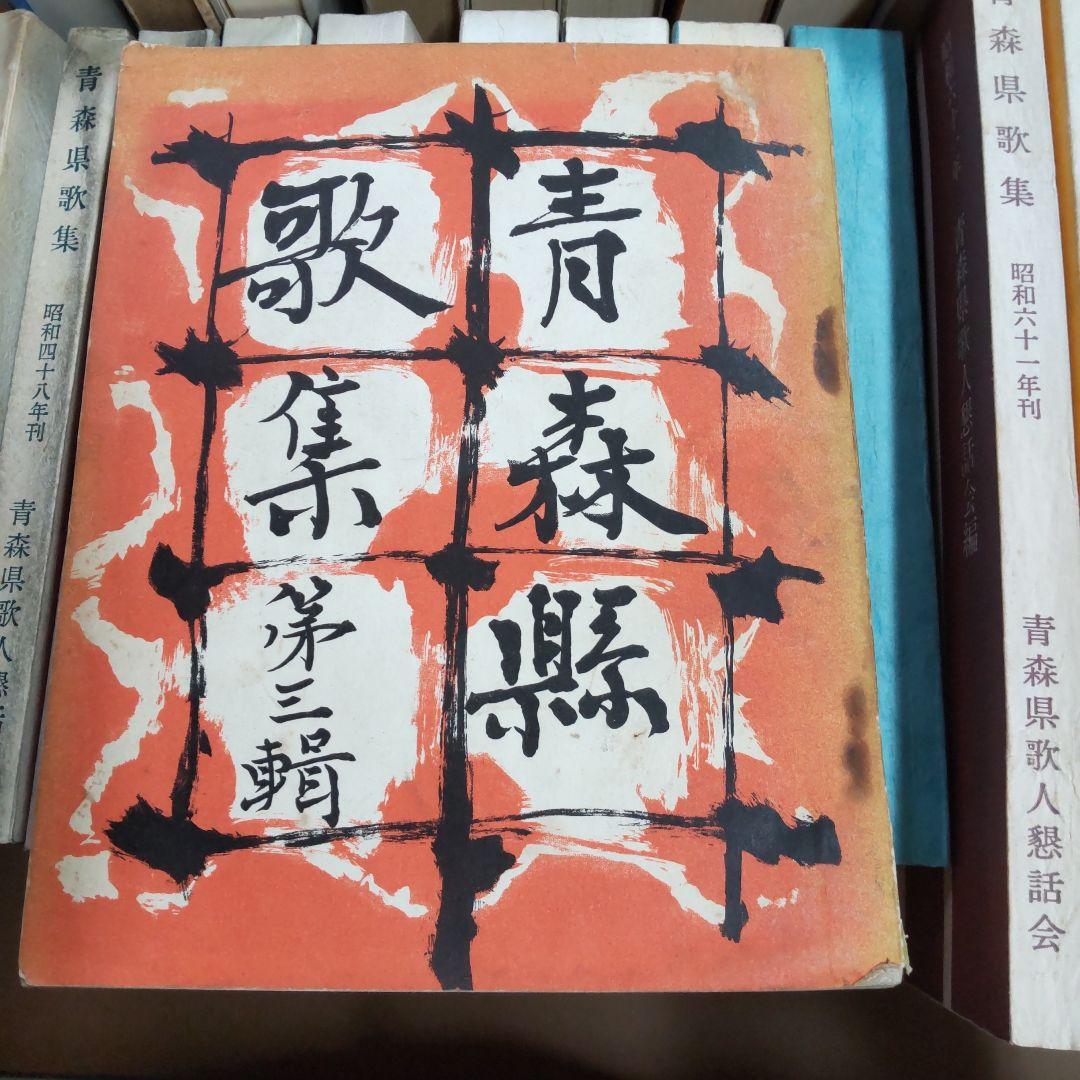 青森縣
歌集
第三輯
青森県歌集 昭和四十八年刊 青森県歌人懇話
青森県歌集 昭和六十一年刊 青森県歌人懇話会
青森県歌人懇話会編